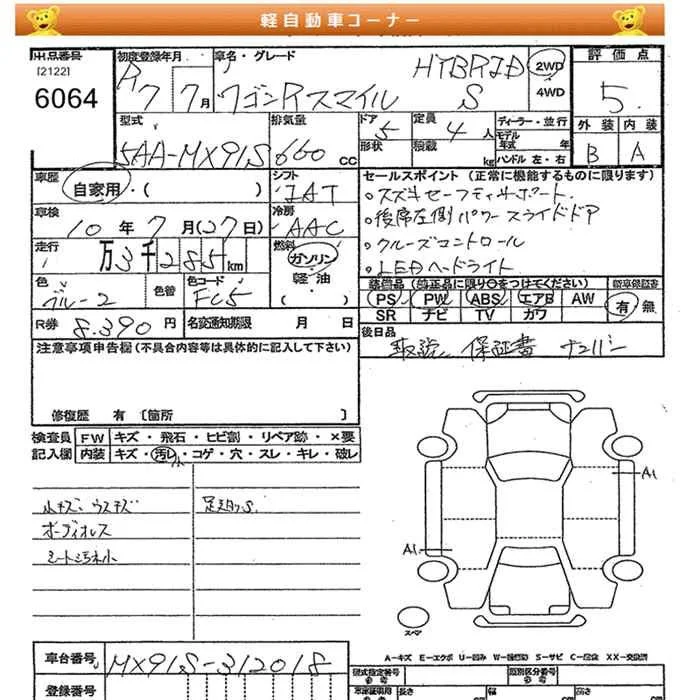 軽自動車コーナー
出品番号 初度登録年月 車名・グレード HYBRID 2WD 評価点
[2122]
6064 R7 7月 ワゴンRスマイル S 4WD 5
型式 排気量 ドア 5 定員 4人 ディーラー・並行 外装 内装
5AA-MX91S 660cc 形状 積載 kg モデル年式 年 ハンドル 左・右 B A
車歴 自家用・( ) シフト IAT セールスポイント(正常に機能するものに限ります)
車検 10年7月(27日) 冷房 AAC 。スズキセーフティサポート
。後席左側パワースライドドア
走行 万3千285km 燃料 ガソリン・軽油 。クルーズコントロール
。LEDヘッドライト
色 ブルー2 色替 色コード FC5 装備品(純正品に限り○をつけてください) 新車保証書
PS PW ABS エアB AW 有・無
SR ナビ TV カワ
R券 8.390円 名変通知期限 月 日 後日品
取説 保証書 ナンバー
注意事項申告欄(不具合内容等は具体的に記入して下さい)
修復歴 有〔箇所 〕
検査員 FW キズ・飛石・ヒビ割・リペア跡・×要
記入欄 内装 キズ・汚レ・コゲ・穴・スレ・キレ・破レ
小キズ ウスキズ
オーディオレス
シート汚れ小
A1
A1
スペア
A-キズ E-エクボ U-凹み W-補修跡 S-サビ C-腐蝕 XX-交換済
車台番号 MX91S-312018
型式指定番号 類別区分番号
参考 参考
登録番号
長さ 幅 高さ